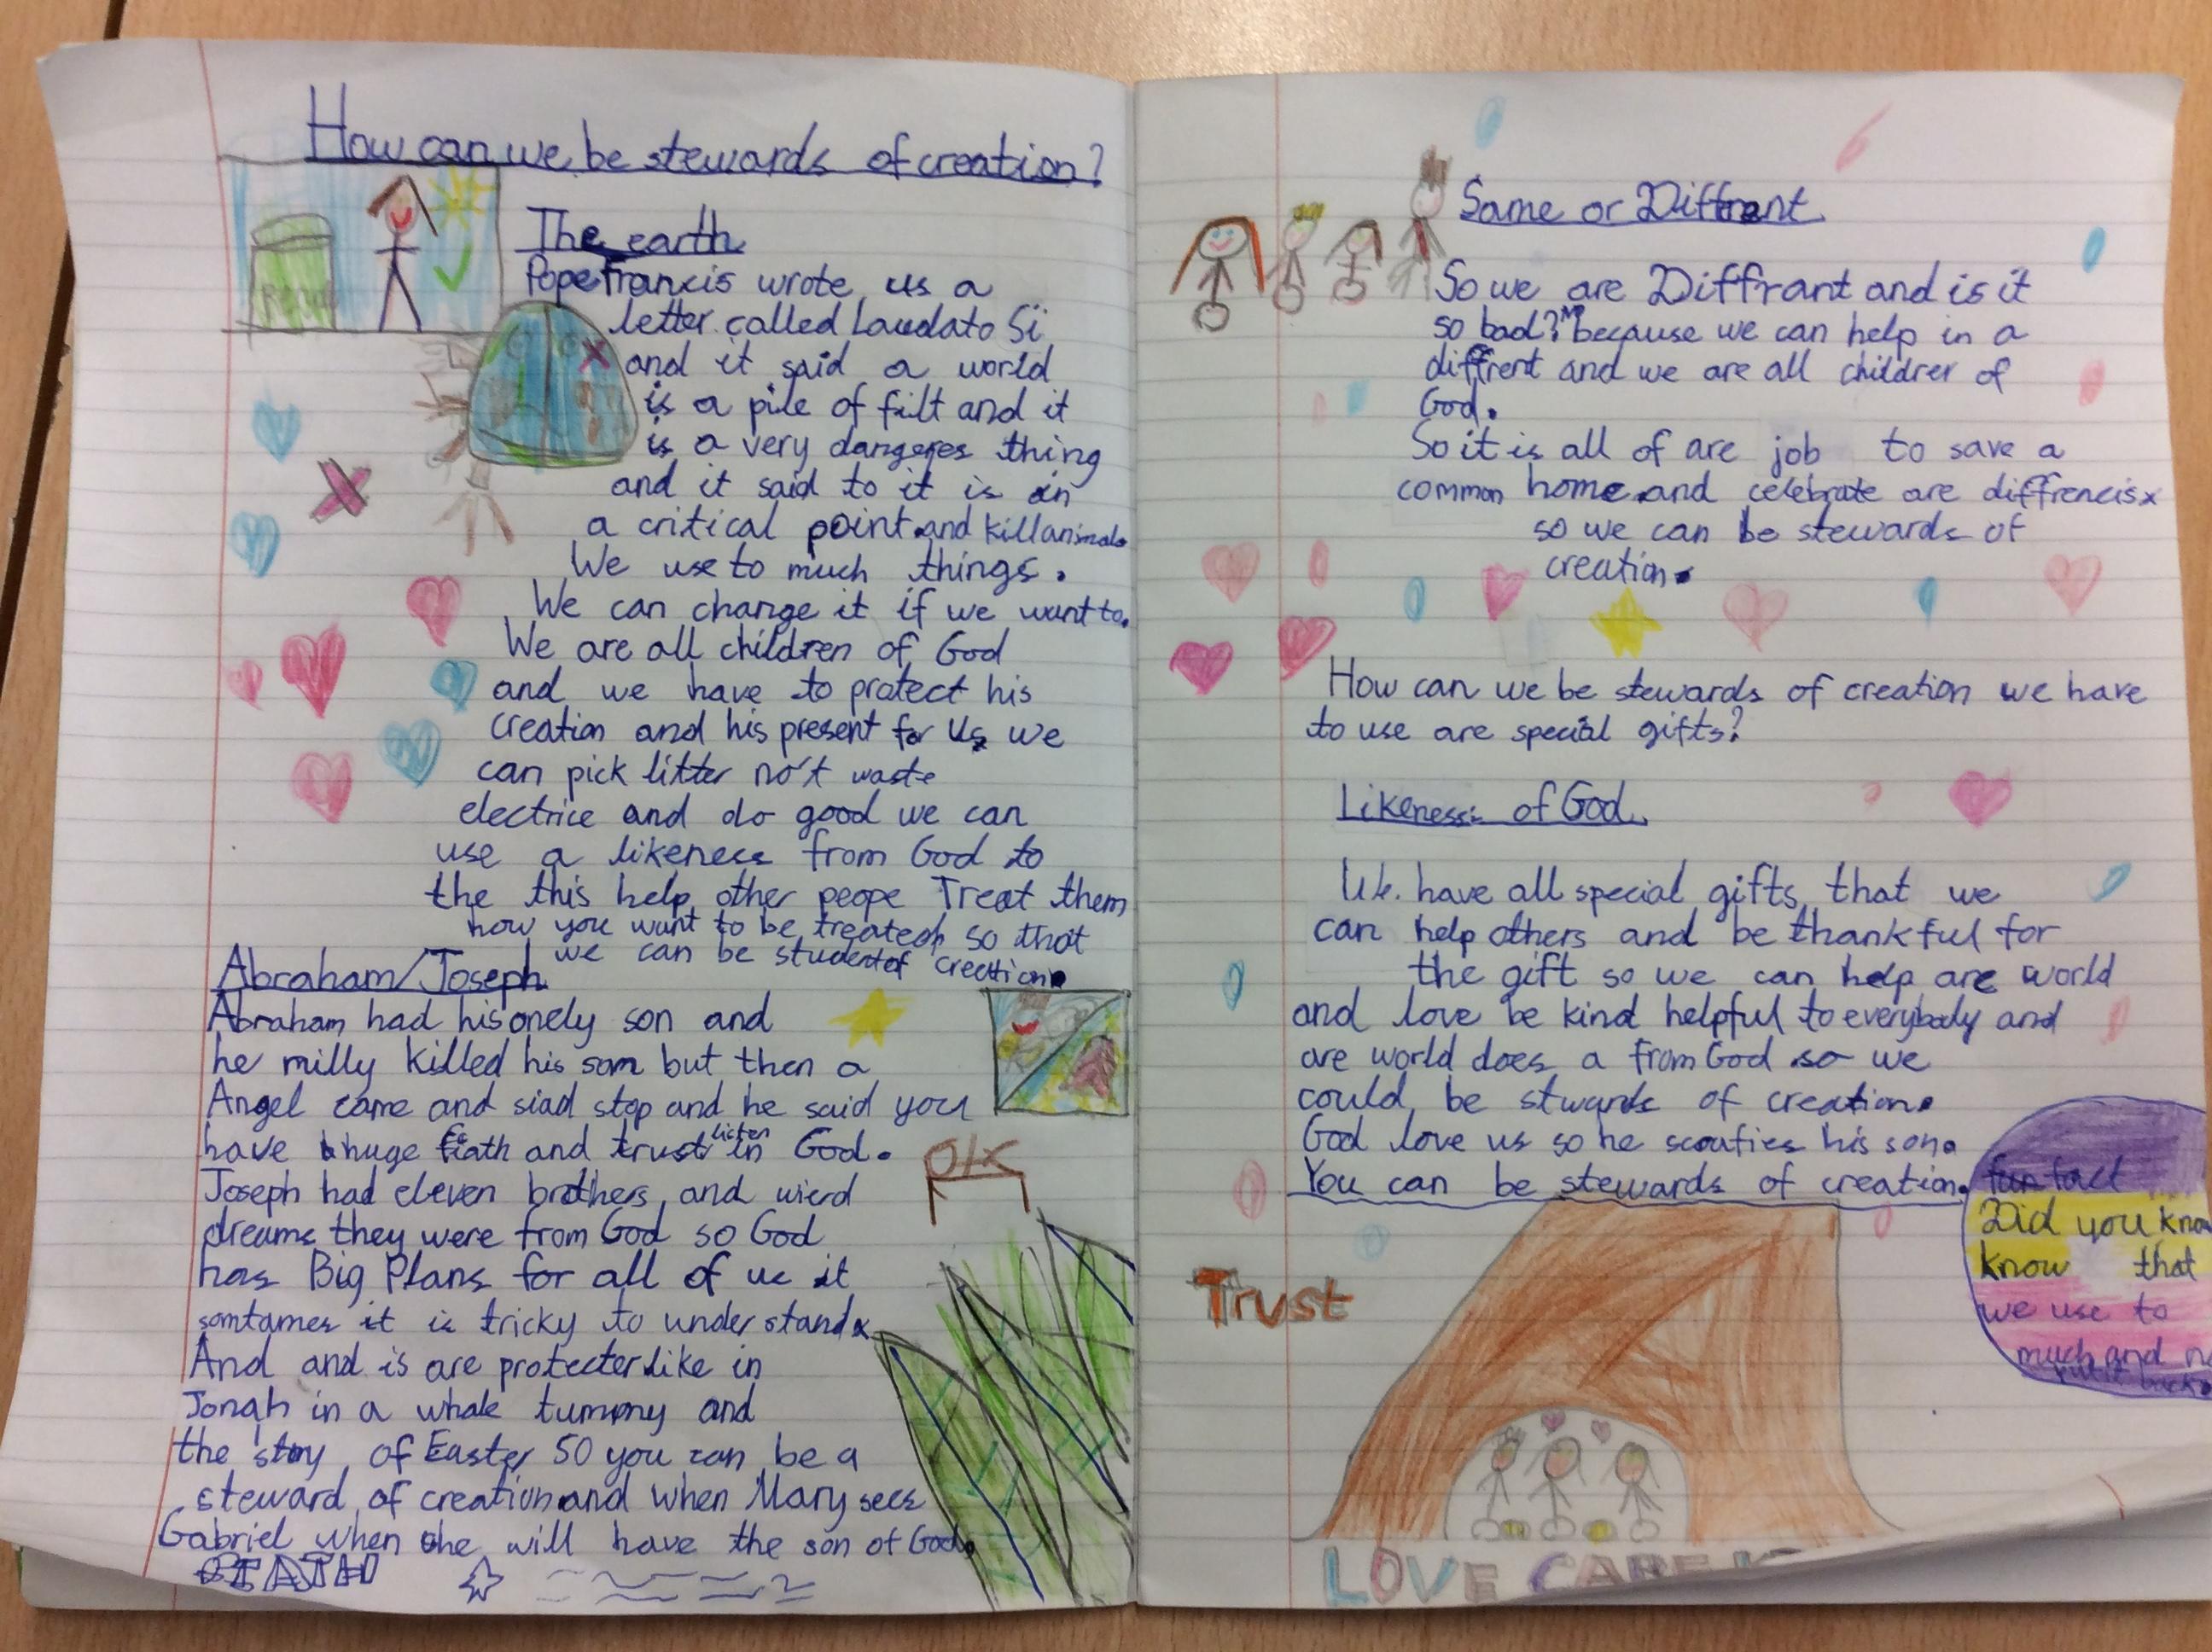 How can we be stewards of creation?
The earth
Pope Francis wrote us a
letter called Laudato Si
and it said a world
is a pile of filt and it
is a very dangeres thing
and it said to it is in
a critical point and kill animals
We use to much things.
We can change it if we want to.
We are all children of God
and we have to protect his
creation and his present for us we
can pick litter no't waste
electrice and do good we can
use a likeness from God to
the this help other peope Treat them
how you want to be treated so that
we can be student of creation.
Abraham/Joseph
Abraham had his onely son and
he milly killed his son but then a
Angel came and siad stop and he said you
have huge fiath and trust listen in God.
Joseph had eleven brothers and wierd
dreams they were from God so God
has Big Plans for all of us it
somtames it is tricky to understand
And and is are protecter like in
Jonah in a whale tummy and
the story of Easter so you can be a
steward of creation and when Mary sees
Gabriel when she will have the son of God.
Same or Diffrent
So we are Diffrant and is it
so bad? because we can help in a
diffrent and we are all childrer of
God.
So it is all of are job to save a
common home and celebrate are diffrencis
so we can be stewards of
creation.
How can we be stewards of creation we have
to use are special gifts?
Likeness of God.
We have all special gifts that we
can help others and be thankful for
the gift so we can help are world
and love be kind helpful to everybody and
are world does a from God so we
could be stwards of creation.
God love us so he his son.
You can be stewards of creation.
fun fact
Did you know
know that
we use to
much and
back
Trust
LOVE CARE